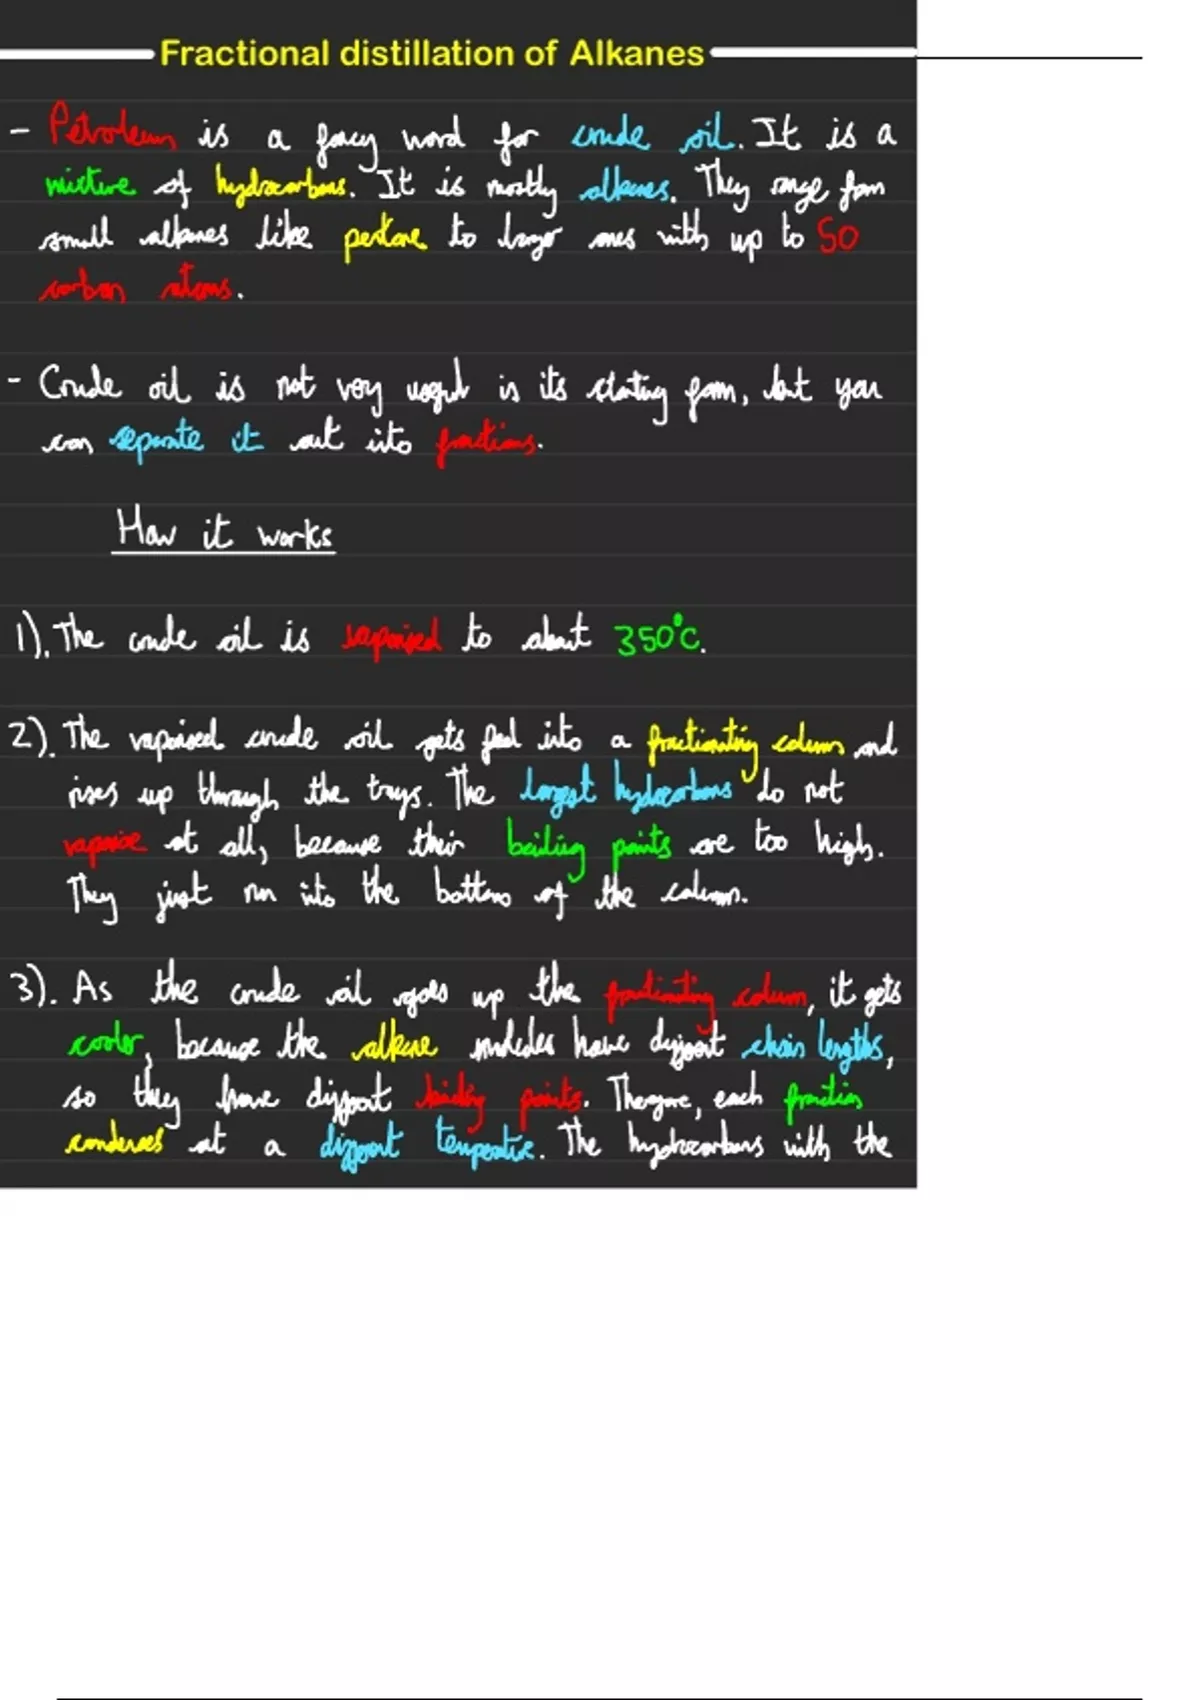 Fractional distillation of Alkanes
- Petroleum is a fancy word for crude oil. It is a
mixture of hydrocarbons. It is mostly alkanes. They range from
small alkanes like pentane to larger ones with up to 50
carbon atoms.
- Crude oil is not very useful in its starting form, but you
can separate it out into fractions.
How it works
1). The crude oil is vaporised to about 350°C.
2). The vaporised crude oil gets fed into a fractionating column and
rises up through the trays. The largest hydrocarbons do not
vaporise at all, because their boiling points are too high.
They just run into the bottom of the column.
3). As the crude oil goes up the fractionating column, it gets
cooler, because the alkane molecules have different chain lengths,
so they have different boiling points. Therefore, each fraction
condenses at a different temperature. The hydrocarbons with the